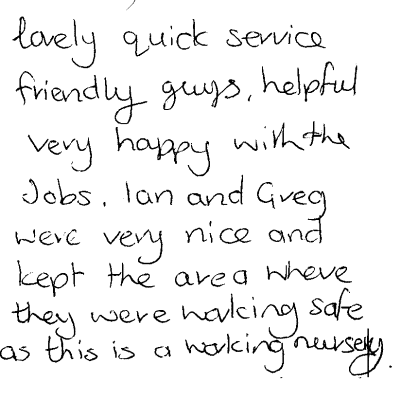 lovely quick service
friendly guys, helpful
very happy with the
Jobs. Ian and Greg
were very nice and
kept the area where
they were working safe
as this is a working nursery.